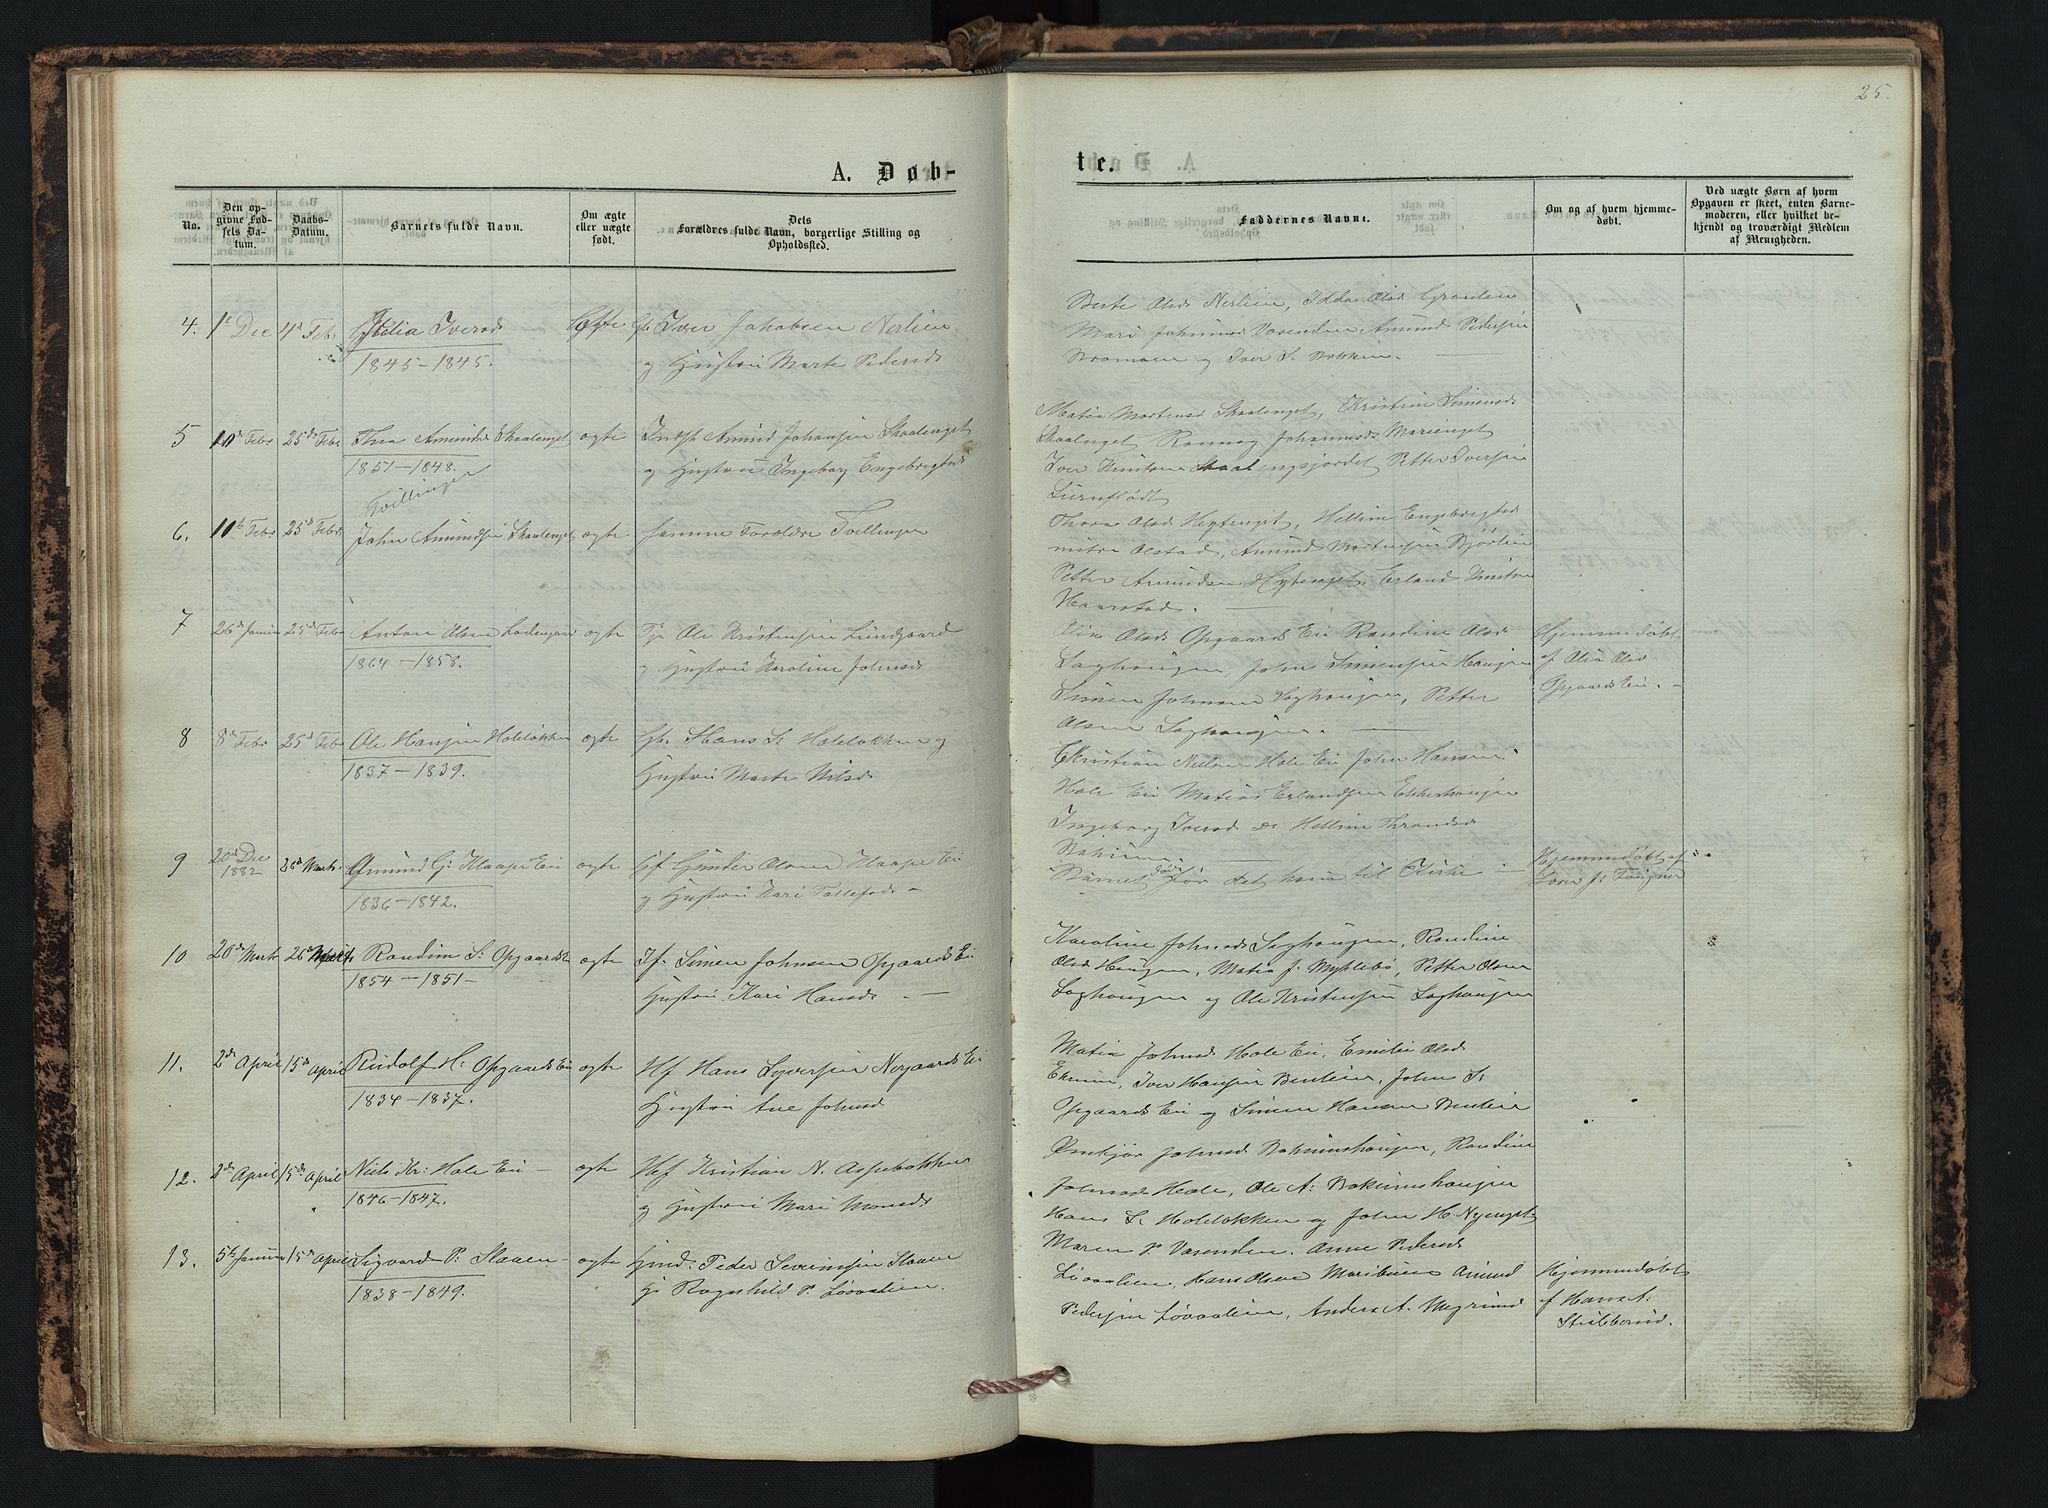 25.
A. Døb-
te.
No.
Den op-
givne Fød-
sels Da-
tum.
Daabs-
Datum.
Barnets fulde Navn.
Om ægte
eller uægte
født.
Dets
Forældres fulde Navn, borgerlige Stilling og
Opholdssted.
Faddernes Navne.
Om og af hvem hjemme-
døbt.
Ved uægte Børn af hvem
Opgaven er skeet, enten Barne-
moderen, eller hvilket be-
kjendt og troværdigt Medlem
af Menigheden.
4. 1te Dec 4de Febr Iversd Ægte Iver Jakobsen Nerlien
1845-1845.
og Hustru Marte Pedersd
Berte Olsd Nerlien, Idda Olsd
Mari Johnsd Vasenden Amund Pedersen
og Iver S. Bakken.
5 10de Febr 25de Febr Thea Amundsd Skaalenget ægte Indst Amund Johansen Skaalenget
1851-1848.
og Hustru Ingeborg Engebregtsd
Tvillinger
Matia Mortensd Skaalenget, Kristine Simensd
Skaalenget Ronnog Johannesd Marienget
Iver Knutsen Skaalengsjordet Petter Iversen
6. 10de Febr 25de Febr John Amundsen Skaalenget ægte Samme Forældre Tvillinger
Thora Olsd Hytenget, Helline Engebregtsd
Olstad, Amund Mortensen Bjørlien
Petter Amundsen Hytenget, Erland Knutsen
Haarstad.
7 26de Januar 25de Febr Anton Olsen ægte Ole Kristensen Lundgaard
1864-1858.
og Hustru Karoline Johnsd
Olia Olsd Opgaards Ei Randine Olsd
Laghaugen, John Simensen Haugen
Simen Johnsen Laghaugen, Petter
Olsen Laghaugen.
Hjemmedøbt
af Olia Olsd
Opgaards Ei.
8 8de Febr 25de Febr Ole Hansen Holeløkken ægte Hans S. Holeløkken og
1837-1839.
Hustru Marte Nilsd
Christian Nielsen Hole Ei John Hansen
Hole Ei Matias Erlandsen Ekkerhaugen
Ingeborg Iversd Do Helline Throndsd
9 20de Dec
1882
26de Marts. Amund G. Klaape Ei ægte Hf Gunder Olsen Klaape Ei
1836-1842.
og Hustru Kari Tollefsd -
Barnet døde før det kom til Kirke -
Hjemmedøbt af
J. Fougner
10 20de Marts 26de Marts Randine S. Opgaards Ei ægte If. Simen Johnsen Opgaards Ei
1854-1851-
Hustru Kari Hansd. -
Karoline Johnsd Laghaugen, Randine
Olsd Haugen, Matia J. Myklebø, Petter Olsen
Laghaugen og Ole Kristensen Laghaugen
11. 2de April 15de April Rudolf H. Opgaards Ei ægte Hf Hans Syversen Norgaards Ei
1834-1837.
Hustru Ane Johnsd
Matia Johnsd Hole Ei, Emilie Olsd
Iver Hansen Benlien, John S.
Opgaards Ei og Simen Hansen Benlien
12. 2de April 15de April Niels Kr: Hole Ei - ægte Hf Kristian N. Aspebakken
1846-1847.
og Hustru Mari Monsd
Johnsd Bakimshaugen, Randine
Johnsd Hole, Ole A. Bakimshaugen
Hans S. Holeløkken og John H. Nyenget
13. 5te Januar 15de April Sigvard P. Slaaen - ægte Gmd. Peder Severinsen Slaaen
1838-1849.
H: Ragnhild P. Løvaalien.
Maren P. Vasenden. Anne Pedersd
Løvaalien, Hans Olsen Maribuen Amund
Pedersen Løvaalien, Anders A. Megrund
Hjemmedøbt
af Hans A.
Stubberud.